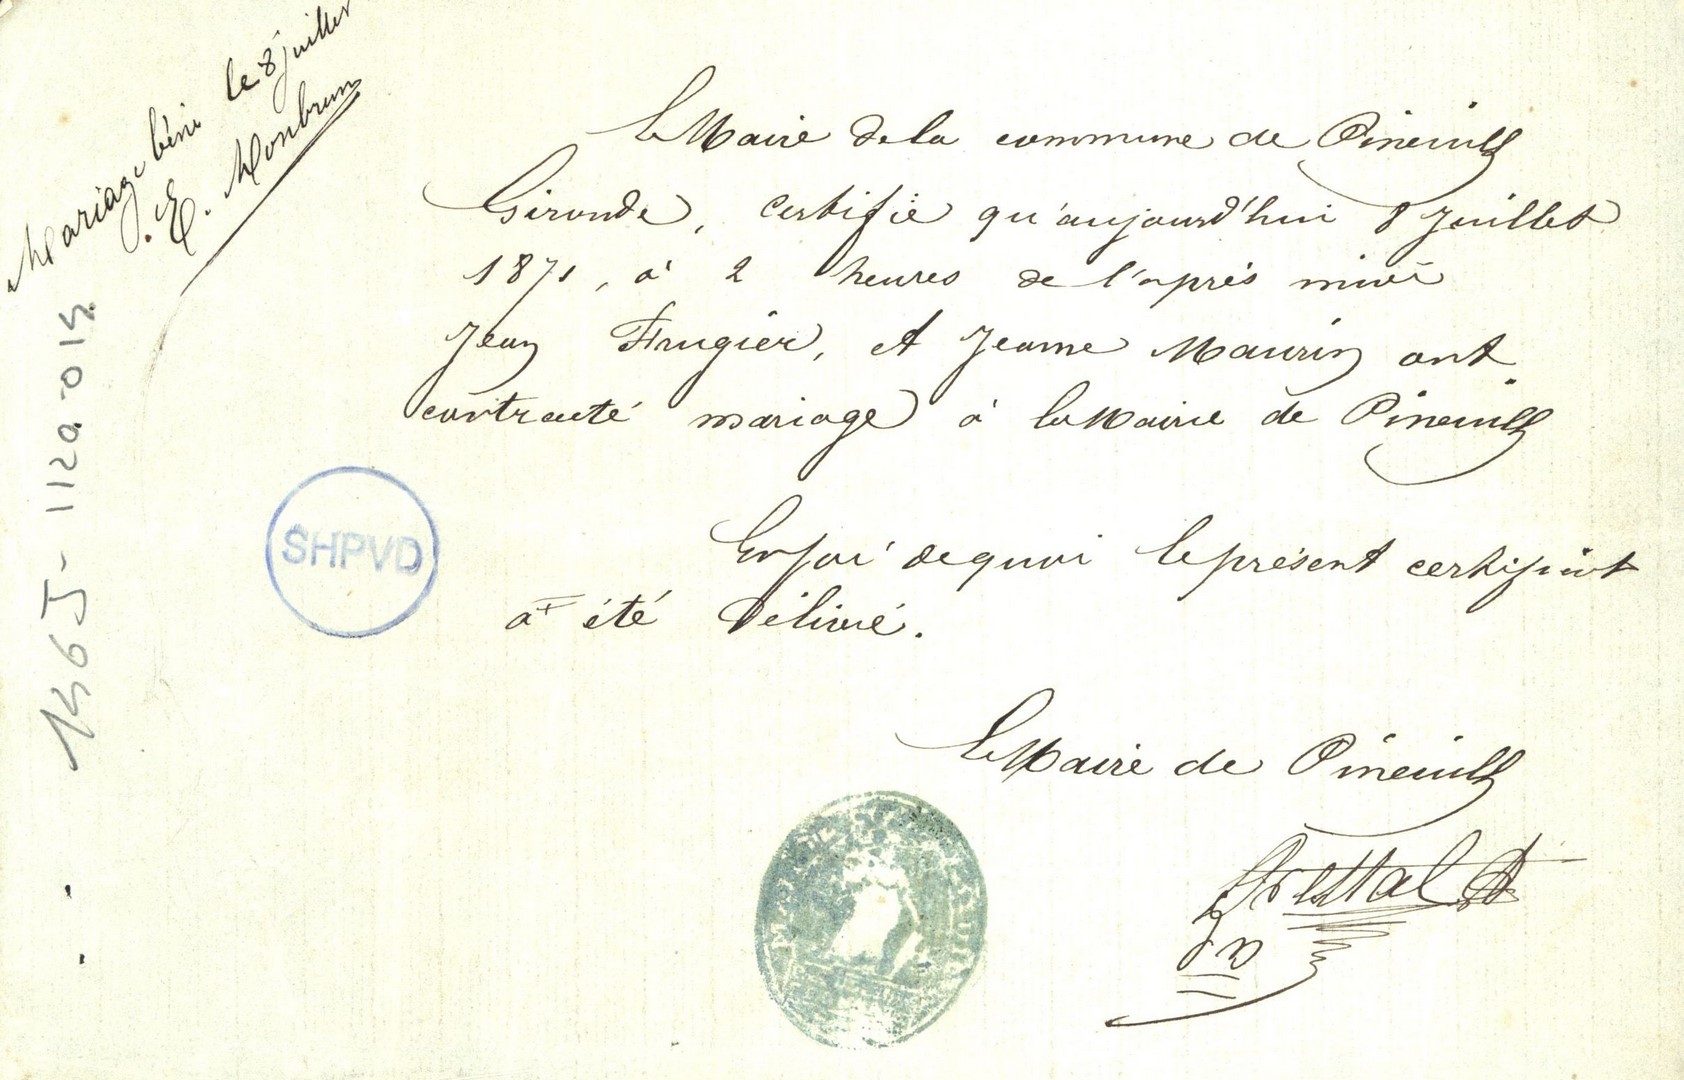 Mariage béni le 8 juillet
E. Monbrun
Le Maire de la commune de Pineuilh
Gironde, certifie qu'aujourd'hui 8 Juillet
1871, à 2 heures de l'après midi
Jean Frugier, et Jeanne Maurin ont
contracté mariage à la Mairie de Pineuilh
En foi de quoi le présent certificat
a été délivré.
Le Maire de Pineuilh
SHPVD
146J-112a.014.